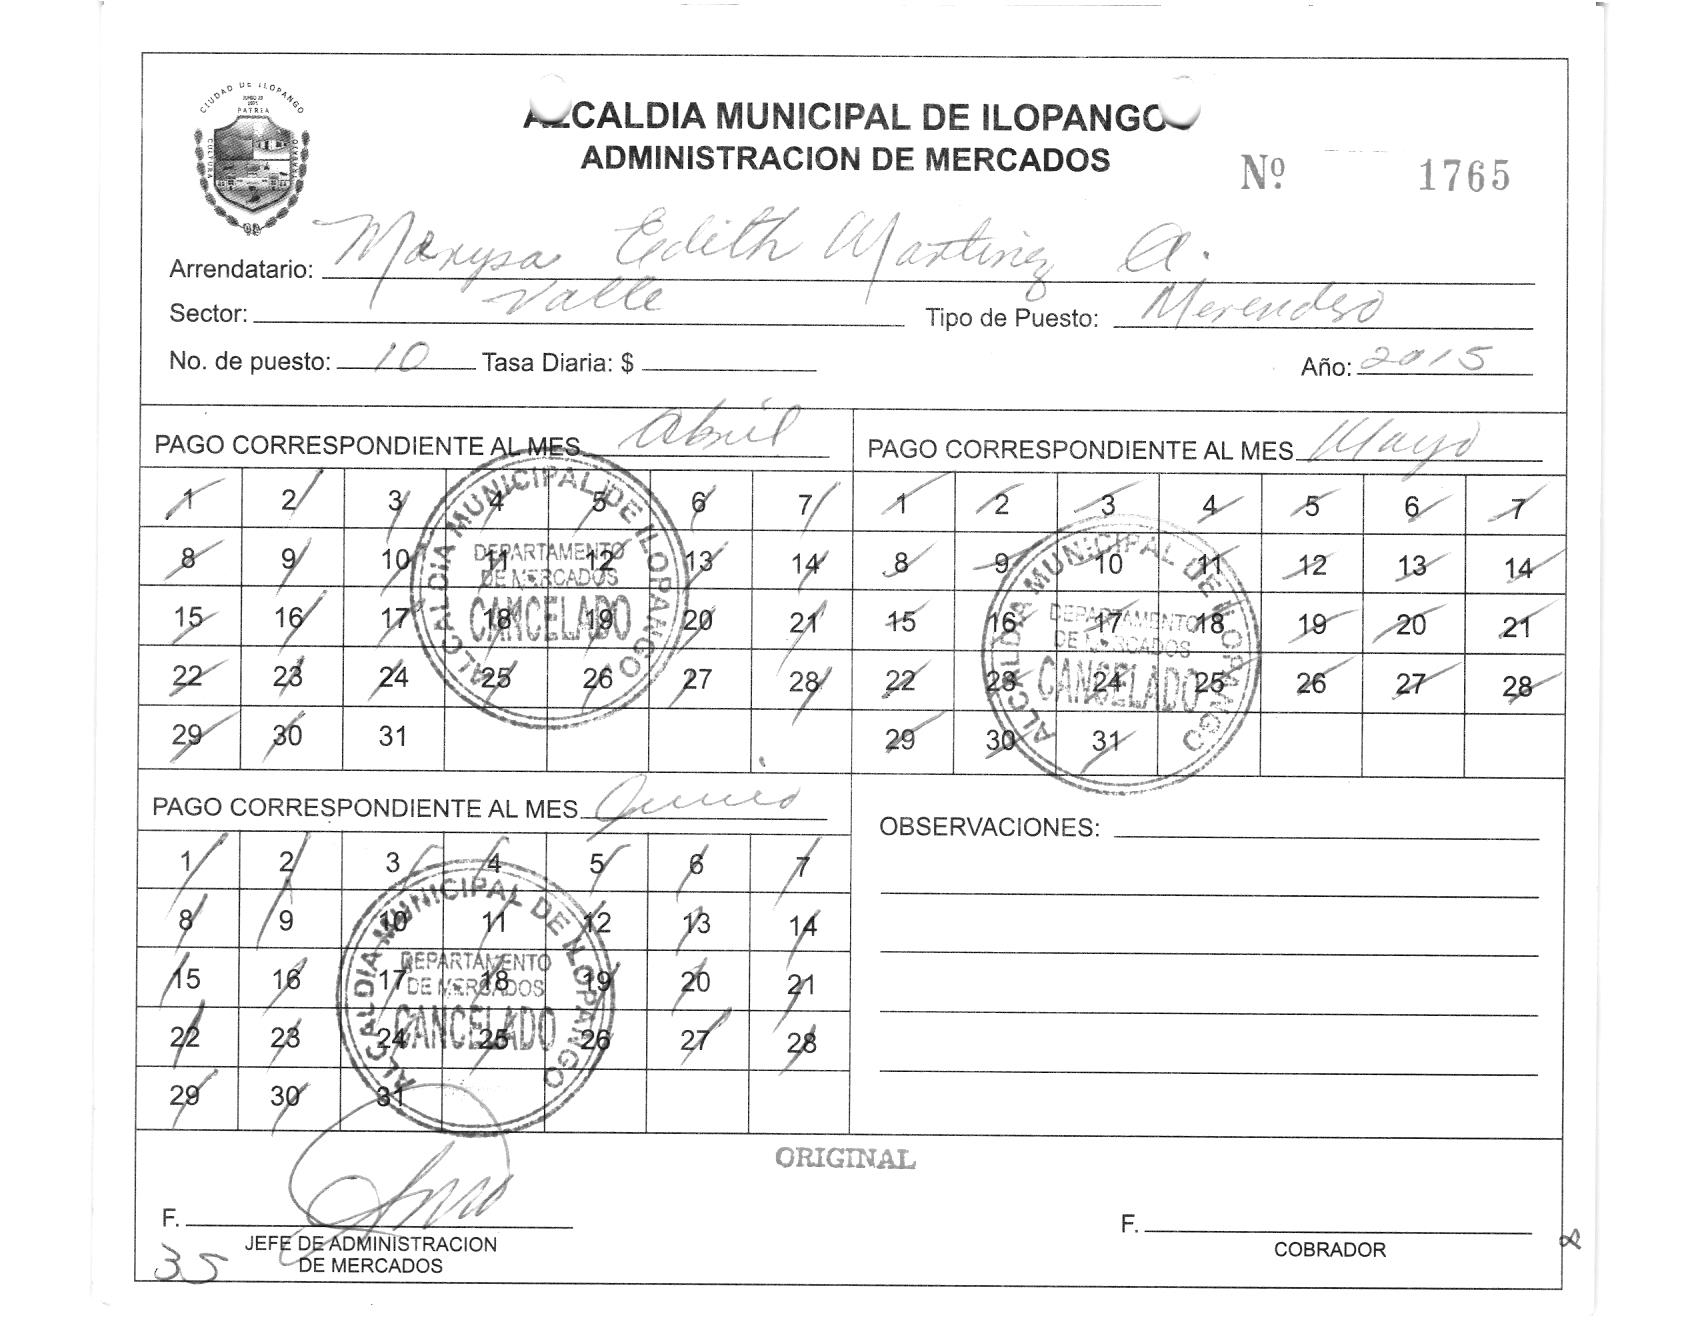 CIUDAD DE ILOPANGO
PATRIA
CULTURA
ALCALDIA MUNICIPAL DE ILOPANGO
ADMINISTRACION DE MERCADOS
Nº 1765
Arrendatario: Marysa Edith Martinez A.
Sector: Valle Tipo de Puesto: Merendero
No. de puesto: 10 Tasa Diaria: $ Año: 2015
PAGO CORRESPONDIENTE AL MES Abril
1 2 3 4 5 6 7
8 9 10 11 12 13 14
15 16 17 18 19 20 21
22 23 24 25 26 27 28
29 30 31
ALCALDIA MUNICIPAL DE ILOPANGO
DEPARTAMENTO
DE MERCADOS
CANCELADO
PAGO CORRESPONDIENTE AL MES Mayo
1 2 3 4 5 6 7
8 9 10 11 12 13 14
15 16 17 18 19 20 21
22 23 24 25 26 27 28
29 30 31
ALCALDIA MUNICIPAL DE ILOPANGO
DEPARTAMENTO
DE MERCADOS
CANCELADO
PAGO CORRESPONDIENTE AL MES Junio
1 2 3 4 5 6 7
8 9 10 11 12 13 14
15 16 17 18 19 20 21
22 23 24 25 26 27 28
29 30 31
ALCALDIA MUNICIPAL DE ILOPANGO
DEPARTAMENTO
DE MERCADOS
CANCELADO
OBSERVACIONES:
ORIGINAL
F.
JEFE DE ADMINISTRACION
DE MERCADOS
35
F.
COBRADOR